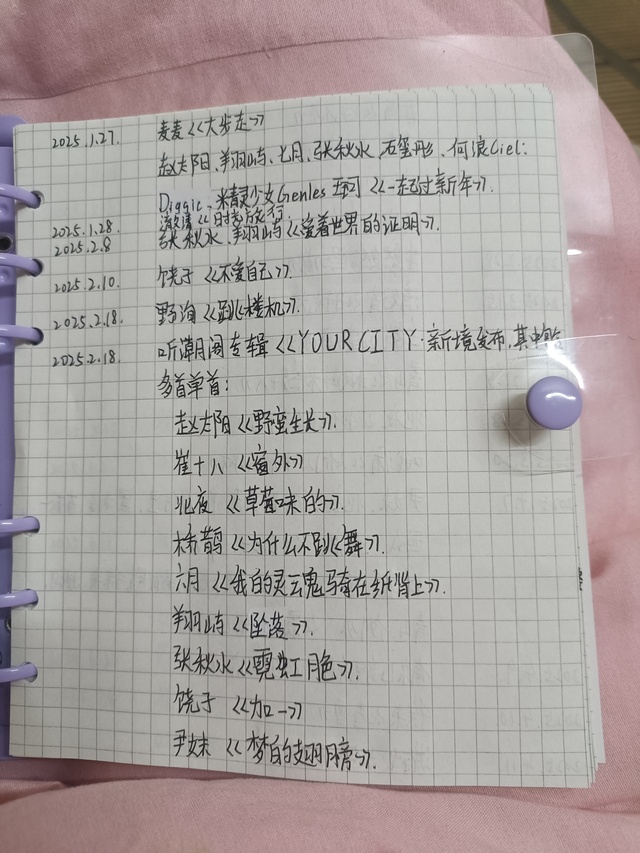 2025.1.27. 麦麦《大步走》
赵太阳、翔屿、七月、张秋水、石玺彤、何浪Ciel、
Diggie、米精灵少女Genles 《一起过新年》.
2025.1.28. 《时装旅行》.
2025.2.8 张秋水、翔屿《爱着世界的证明》.
2025.2.10. 饶子《不爱自己》.
2025.2.18. 野洵《跳楼机》.
2025.2.18. 听潮阁专辑《YOUR CITY·新境发布,其中
多首单首:
赵太阳《野蛮生长》.
崔十八《窗外》
北夜《草莓味的》.
桥鹊《为什么不跳舞》.
六月《我的灵魂骑在纸背上》.
翔屿《坠落》.
张秋水《霓虹脆》.
饶子《加一》
尹妹《梦的翅膀》.